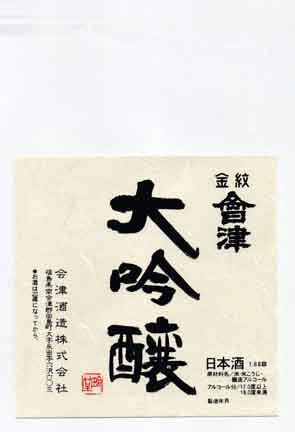 金紋
會津
大吟醸
日本酒 1.8ℓ詰
原材料名/米・米こうじ・
醸造アルコール
アルコール分/17.0度以上
18.0度未満
製造年月
会津酒造株式会社
福島県南会津郡田島町大字永田字穴沢六〇三
●お酒は20歳になってから。